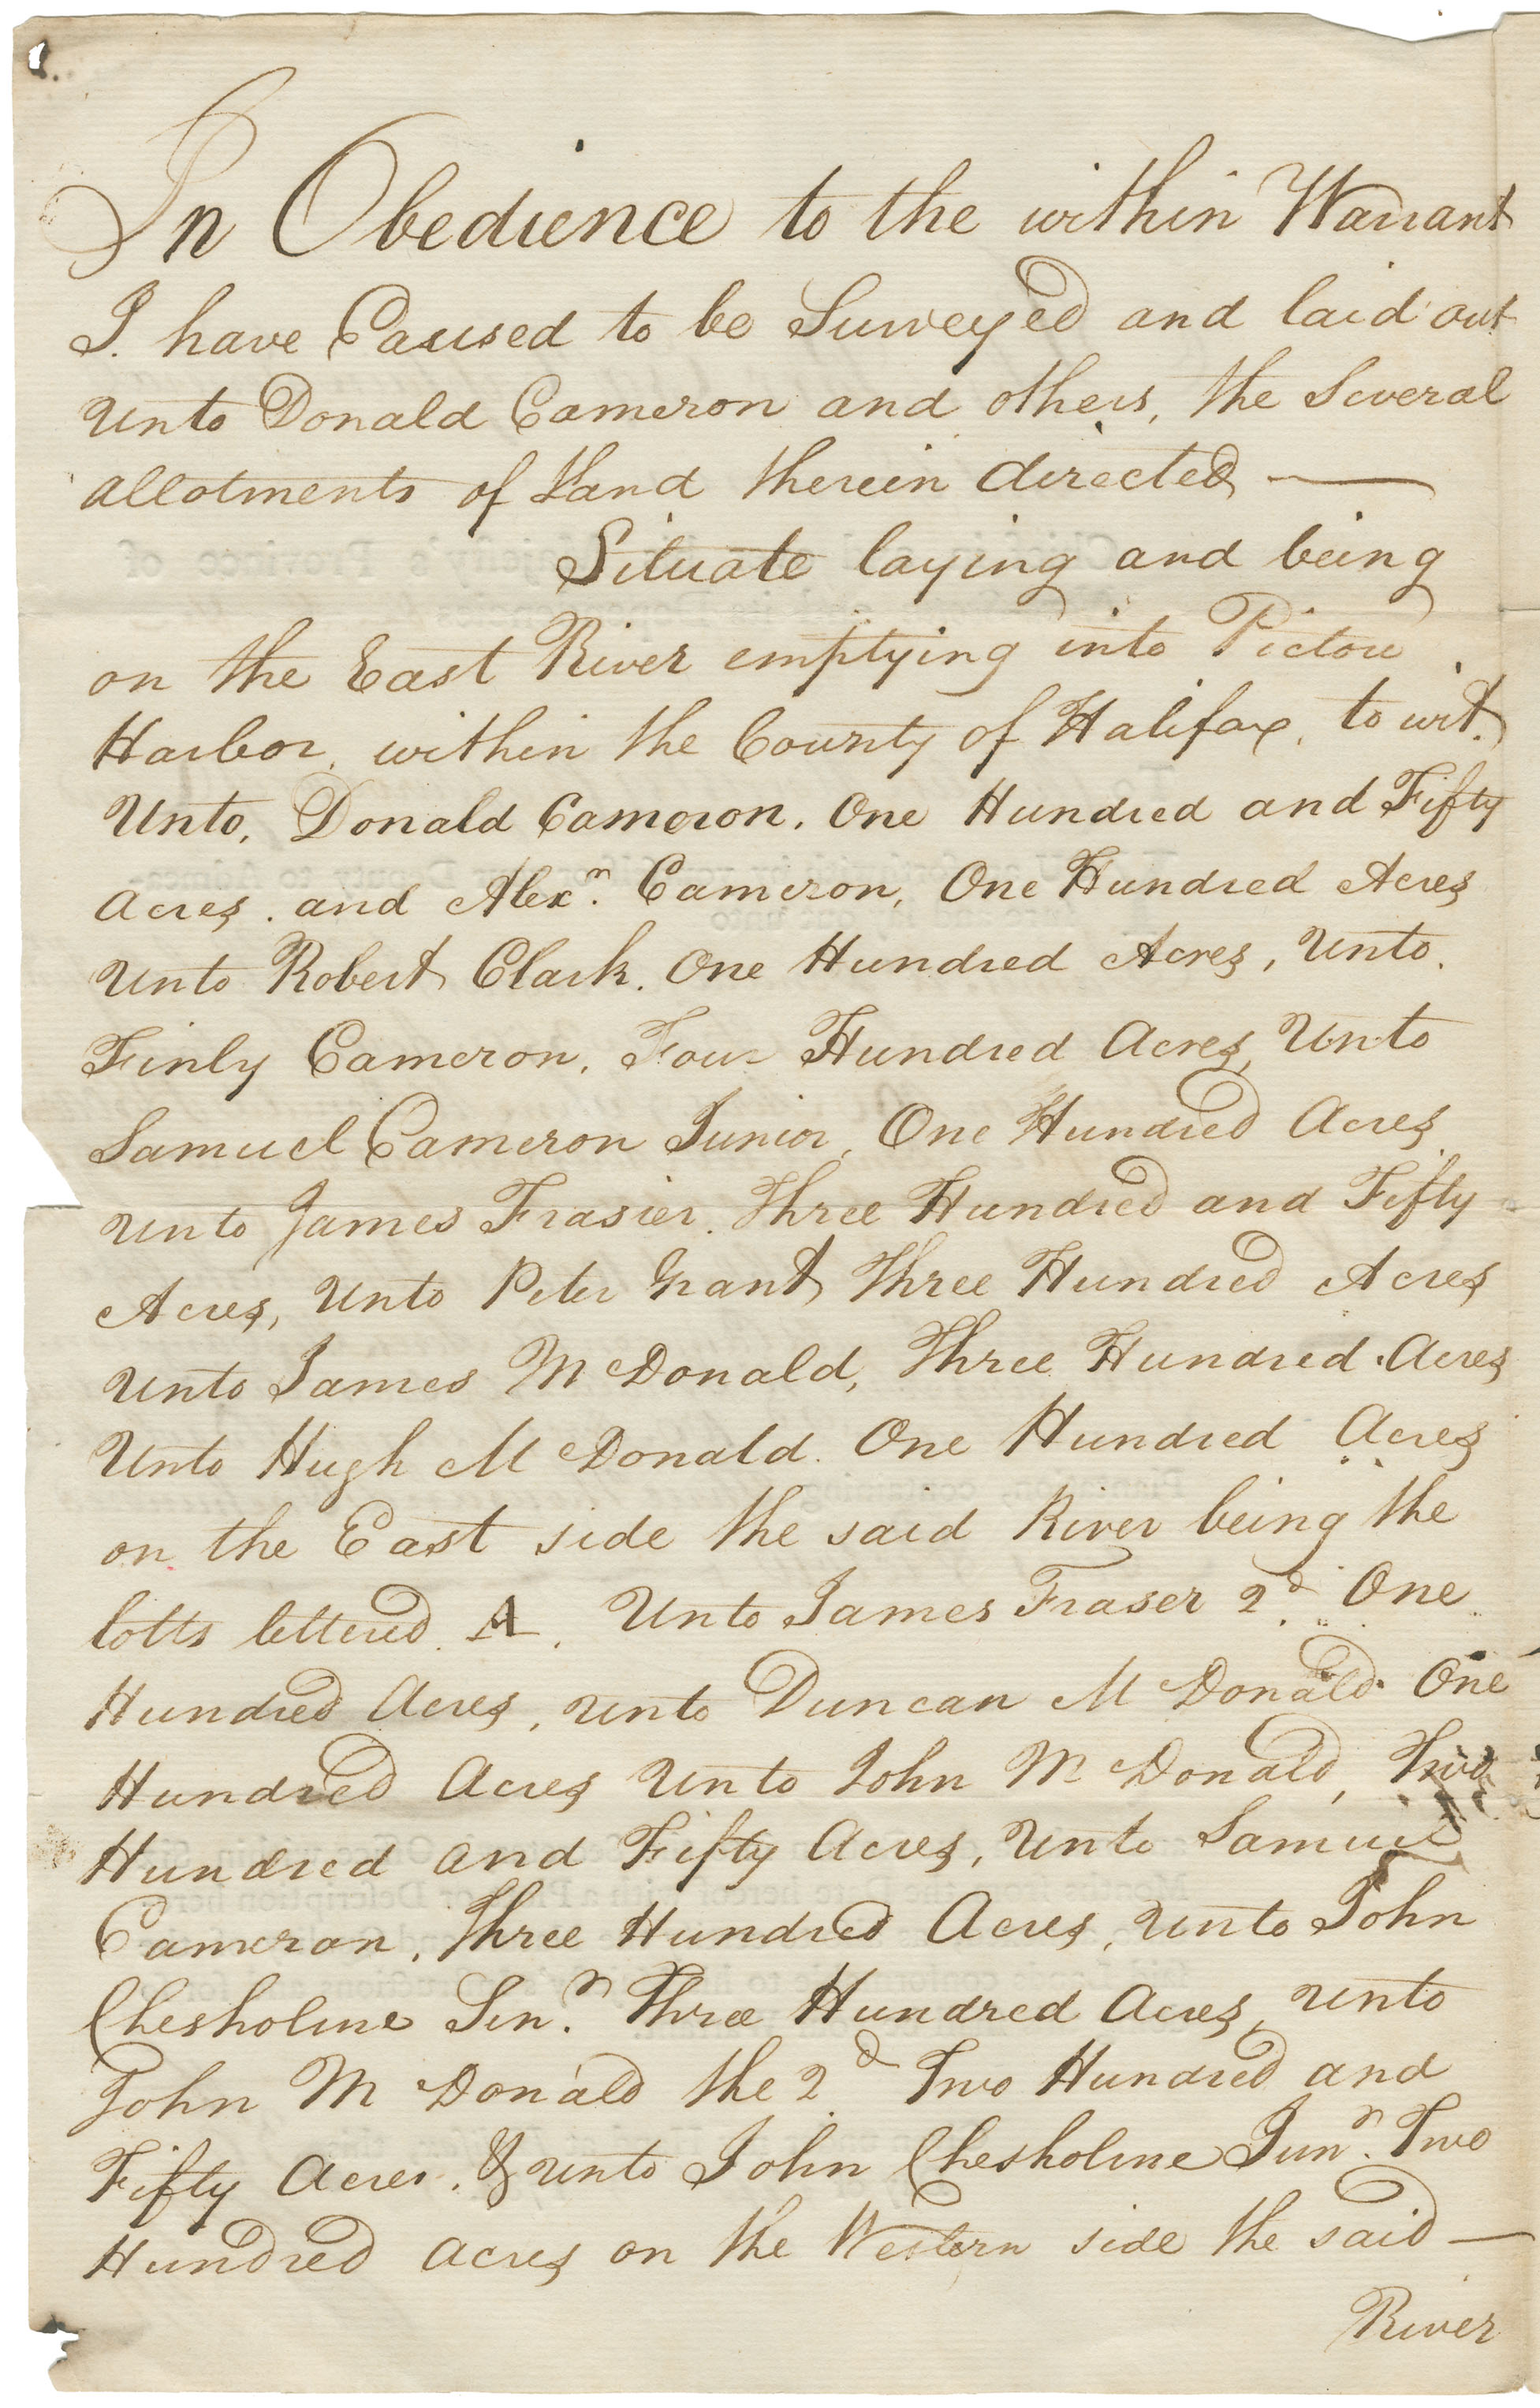 In Obedience to the within Warrant
I. have Caused to be Surveyed and laid out
Unto Donald Cameron and others, the Several
allotments of Land therein directed —
Situate laying and being
on the East River emptying into Pictou
Harbor, within the County of Halifax, to wit.
Unto, Donald Cameron. One Hundred and Fifty
acres. and Alexr. Cameron, One Hundred Acres
Unto Robert Clark. One Hundred Acres, Unto.
Finly Cameron, Four Hundred Acres, Unto
Samuel Cameron Junior, One Hundred Acres
unto James Frasier. Three Hundred and Fifty
Acres, Unto Peter Grant Three Hundred Acres
Unto James McDonald, Three Hundred Acres
Unto Hugh McDonald. One Hundred Acres
on the East side the said River being the
lotts lettered. A. Unto James Fraser 2d. One
Hundred Acres, unto Duncan McDonald One
Hundred Acres Unto John McDonald, Two
Hundred and Fifty Acres, Unto Samuel
Cameron, Three Hundred Acres, Unto John
Chesholme Senr. Three Hundred Acres, unto
John McDonald the 2d Two Hundred and
Fifty Acres. & unto John Chesholme Junr. Two
Hundred acres on the Western side the said —
River